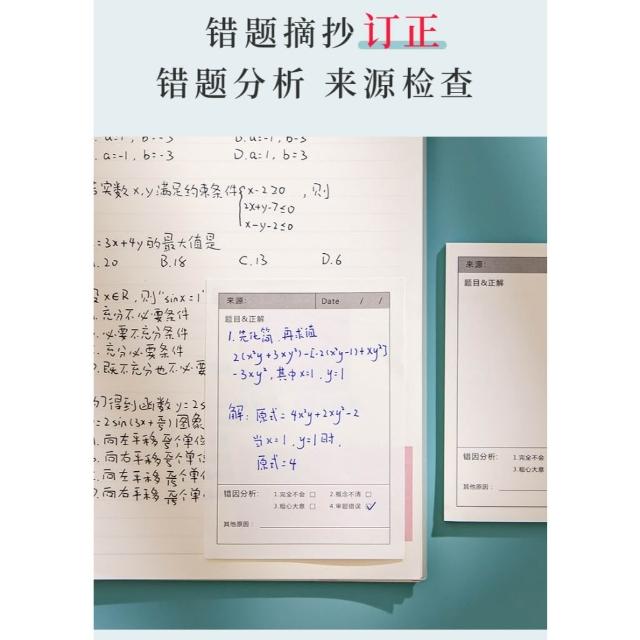 错题摘抄订正
错题分析 来源检查
a=1, b=-3
D.a=-1, b=-3
a=-1, b=-3
D.a=1, b=3
实数x,y满足约束条件{x-2≥0 ,则
2x+y-7≤0
x-y-2≤0
=3x+4y的最大值是
.20 B.18 C.13 D.6
x∈R,则"sinx=1"
.充分不必要条件
.必要不充分条件
.充分必要条件
.既不充分也不必要
得到函数y=2s
=2sin(3x+
图象
.向左平移
个单位
.向右平移
个单位
.向左平移
个单
.向右平移
个单
来源: Date / /
题目&正解
1.先化简,再求值
2(x²y+3xy²)-[-2(x²y-1)+xy²]
-3xy²,其中x=1,y=1
解:原式=4x²y+2xy²-2
当x=1,y=1时,
原式=4
错因分析: 1.完全不会 □ 2.概念不清 □
3.粗心大意 □ 4.审题错误 ☑
其他原因:
来源:
题目&正解
错因分析: 1.完全不会
3.粗心大意
其他原因: